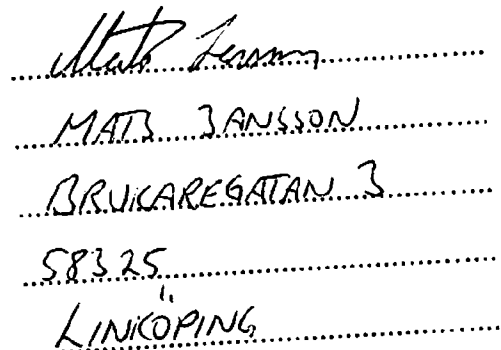 Mats Jansson
MATS JANSSON
BRUKAREGATAN 3
58325
LINKÖPING